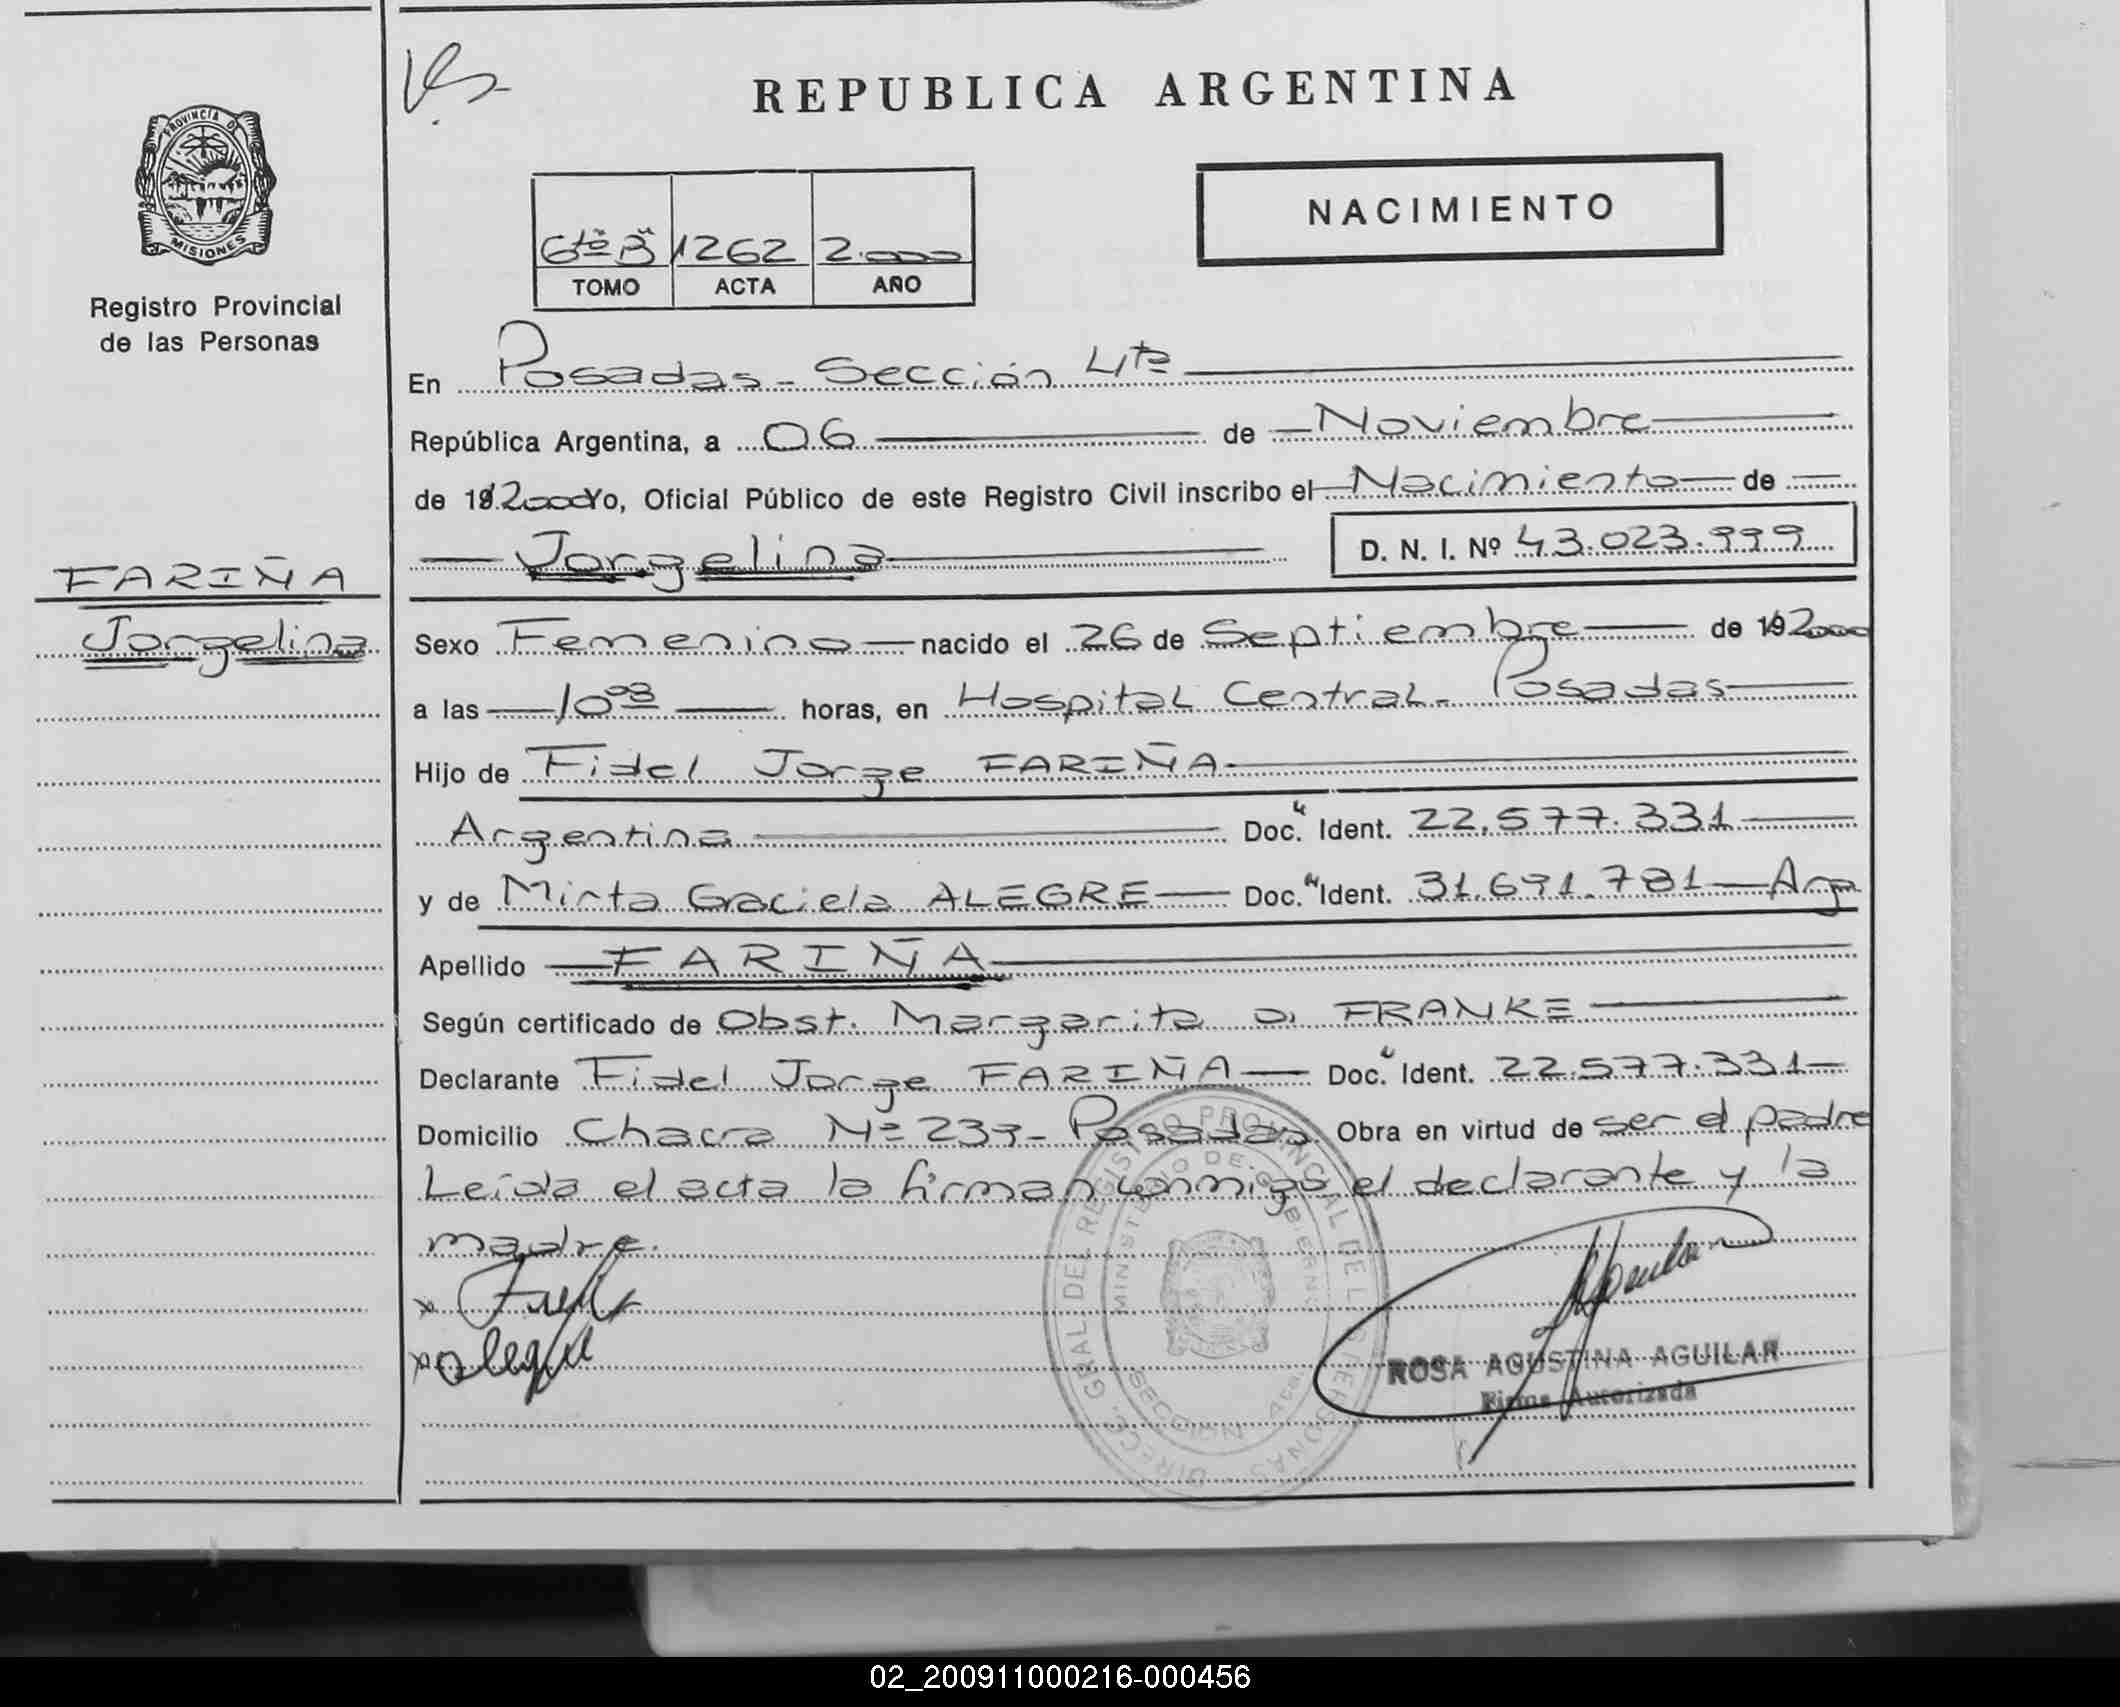 REPUBLICA ARGENTINA
PROVINCIA DE
MISIONES
Registro Provincial
de las Personas
NACIMIENTO
6to "B" 1262 2.000
TOMO ACTA AÑO
En Posadas - Sección 4ta
República Argentina, a 06 de Noviembre
de 19 2000 Yo, Oficial Público de este Registro Civil inscribo el Nacimiento de
Jorgelina
D. N. I. Nº 43.023.999
FARIÑA
Jorgelina
Sexo Femenino nacido el 26 de Septiembre de 19 2000
a las 10 08 horas, en Hospital Central - Posadas
Hijo de Fidel Jorge FARIÑA
Argentina Doc. " Ident. 22.577.331
y de Mirta Graciela ALEGRE Doc. " Ident. 31.691.781 Arg
Apellido FARIÑA
Según certificado de Obst. Margarita O. FRANKE
Declarante Fidel Jorge FARIÑA Doc. " Ident. 22.577.331
Domicilio Chacra Nº 239 - Posadas. Obra en virtud de ser el padre
Leída el acta la firman conmigo el declarante y la
madre.
x
x Alegre
DIRECC. GRAL DEL REGISTRO PROVINCIAL DE LAS PERSONAS
MINISTERIO DE GOBIERNO
SECCION 4ta.
ROSA AGUSTINA AGUILAR
Firma Autorizada
02_200911000216-000456